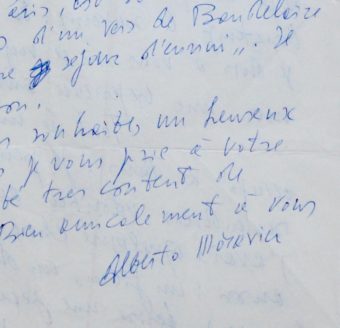 d'un vers de Baudelaire
séjour d'ennui". Je
souhaites un heureux
je vous prie à votre
te très content de
Bien amicalement à vous
Alberto Moravia